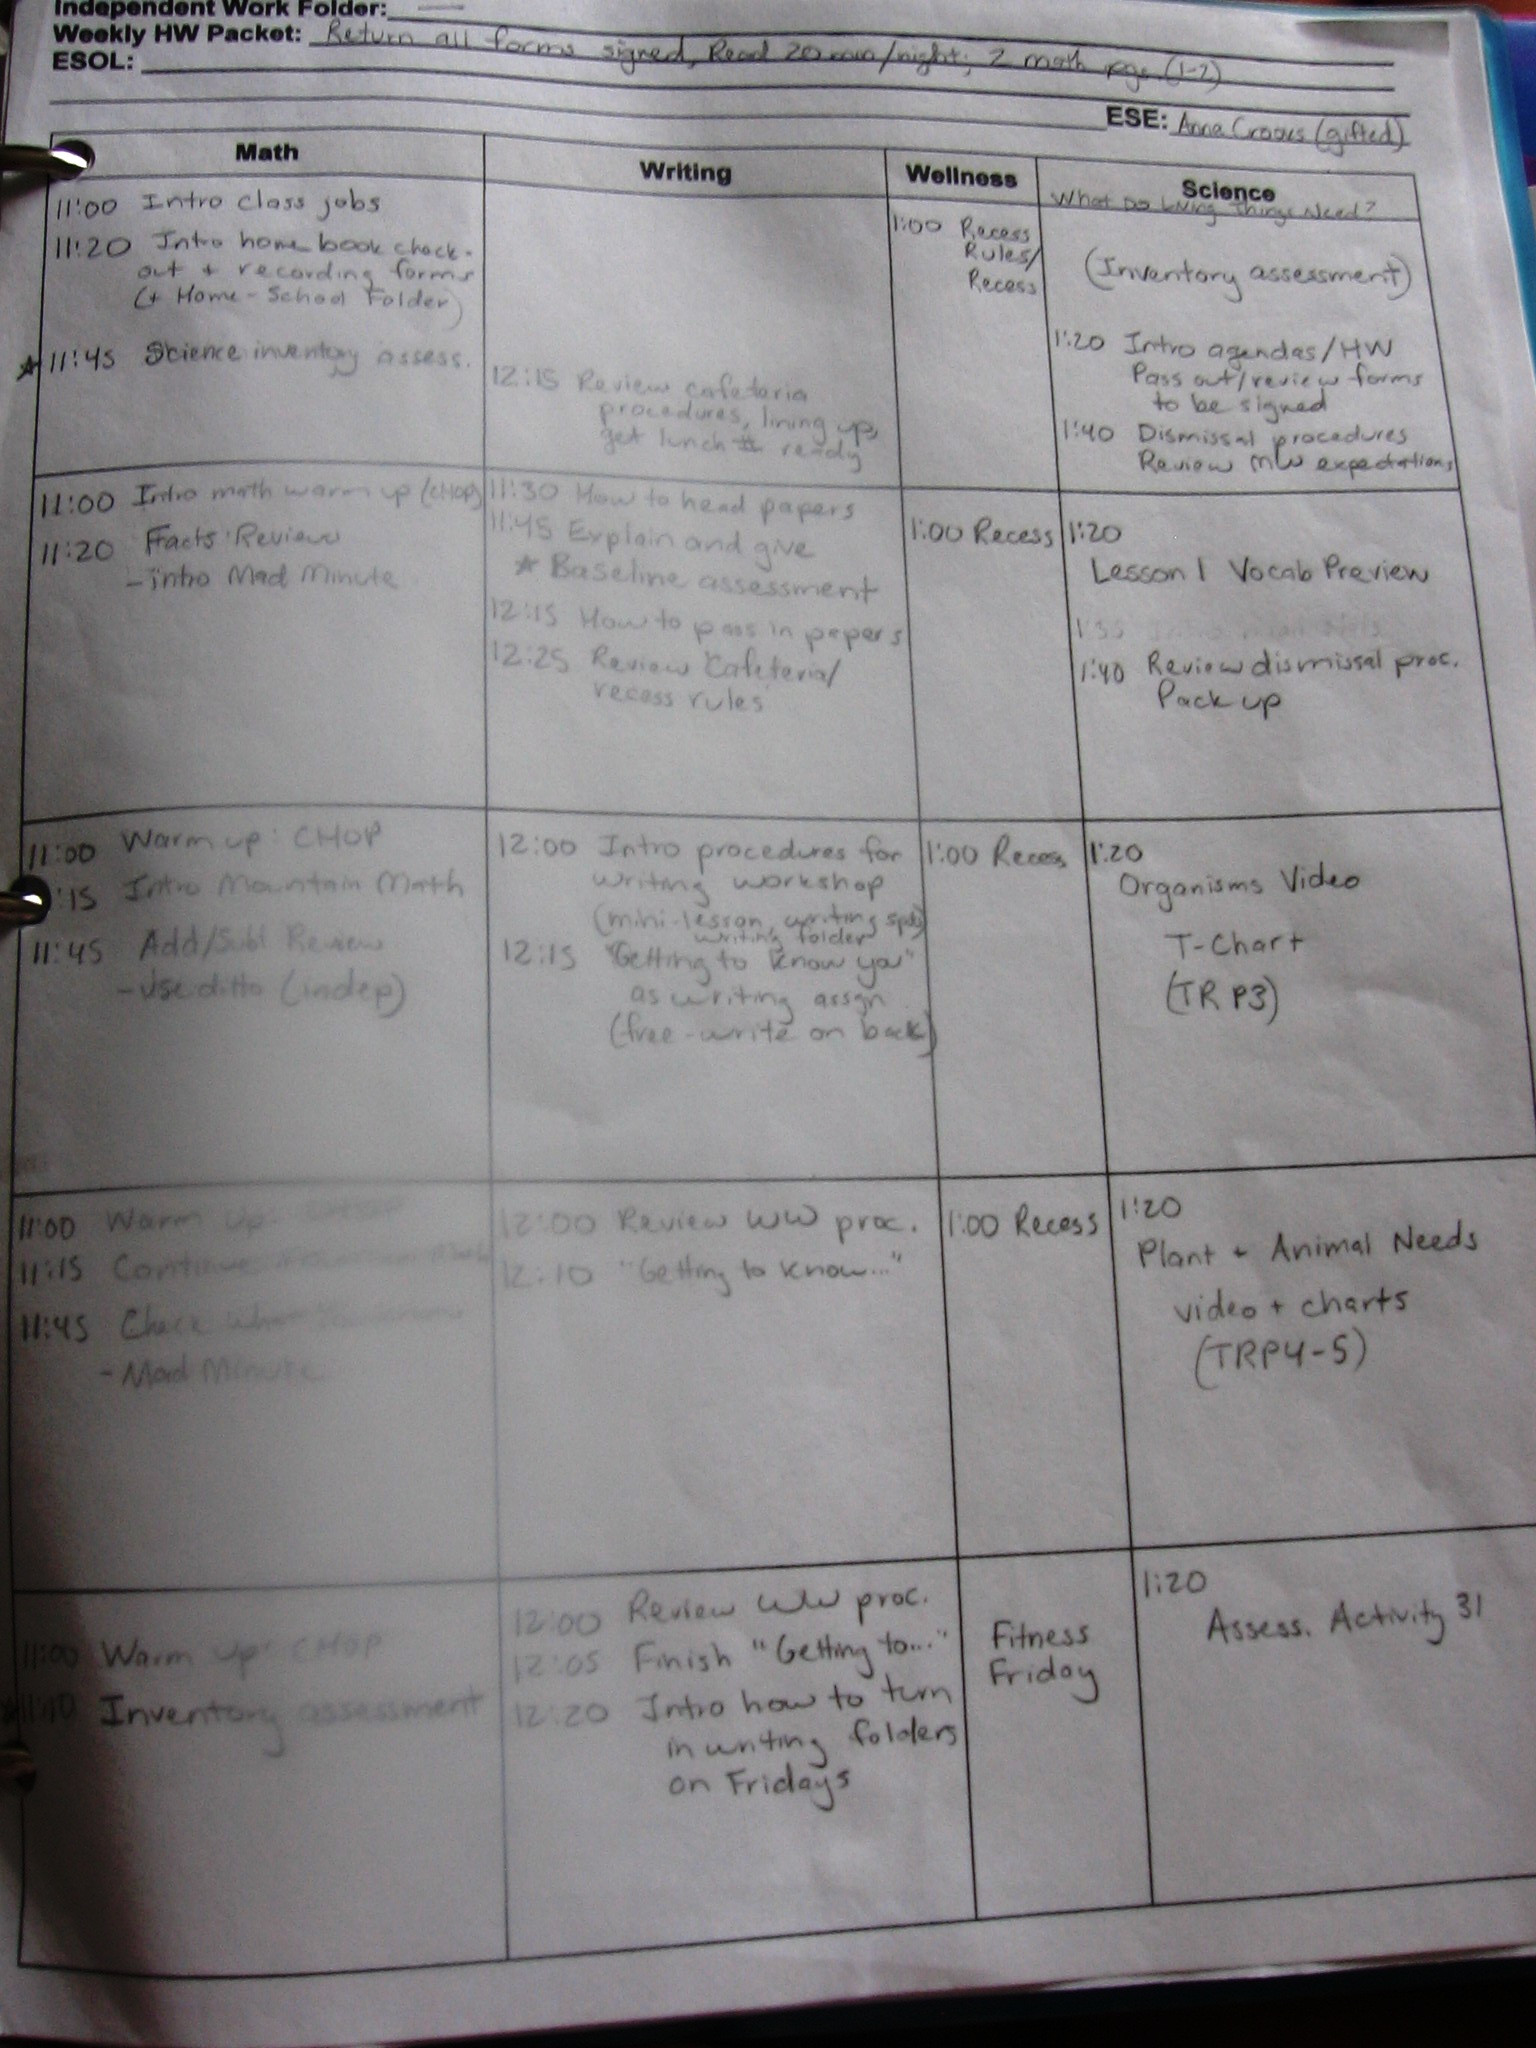 Independent Work Folder:
Weekly HW Packet: Return all forms signed, Read 20 min/night; 2 math pgs. (1-2)
ESOL:
ESE: Anna (gifted)
Math
Writing
Wellness
Science
What Do Living Things Need?
11:00 Intro class jobs
11:20 Intro home book check-
out + recording forms
(+ Home-School Folder)
11:45 Science inventory assess.
12:15 Review cafeteria
procedures, lining up,
get lunch # ready
1:00 Recess
Rules/
Recess
(Inventory assessment)
1:20 Intro agendas/HW
Pass out/review forms
to be signed
1:40 Dismissal procedures
Review MW expectations
11:00 Intro math warm up (CHOP)
11:20 Facts Review
-intro Mad Minute
11:30 How to head papers
11:45 Explain and give
Baseline assessment
12:15 How to pass in papers
12:25 Review Cafeteria/
recess rules
1:00 Recess
1:20
Lesson 1 Vocab Preview
1:40 Review dismissal proc.
Pack up
11:00 Warm up: CHOP
:15 Intro Mountain Math
11:45 Add/Subt Review
-use ditto (indep)
12:00 Intro procedures for
writing workshop
(mini-lesson, writing
writing folder
12:15 "Getting to know you"
as writing assgn
(free-write on back)
1:00 Recess
1:20
Organisms Video
T-Chart
(TR P3)
11:00 Warm Up:
11:15 Continue
11:45 Check what
-Mad Minute
12:00 Review WW proc.
12:10 "Getting to know..."
1:00 Recess
1:20
Plant + Animal Needs
video + charts
(TRP4-5)
11:00 Warm Up: CHOP
11:10 Inventory assessment
12:00 Review WW proc.
12:05 Finish "Getting to..."
12:20 Intro how to turn
in writing folders
on Fridays
Fitness
Friday
1:20
Assess. Activity 31